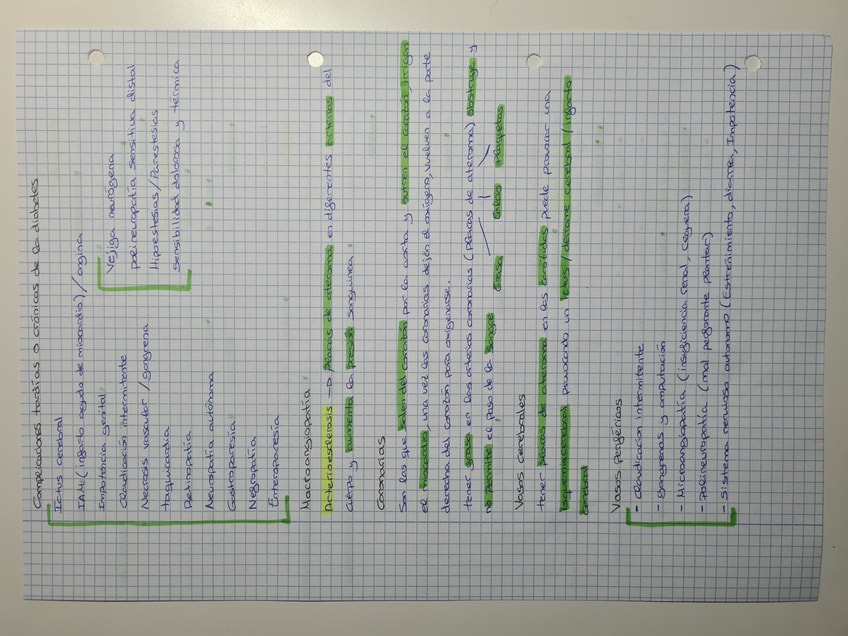 Complicaciones tardías o crónicas de la diabetes
Ictus cerebral
IAM (infarto agudo de miocardio) / angina
Impotencia genital
Claudicación intermitente
Necrosis vascular / gangrena
taquicardia
Retinopatía
Neuropatía autónoma
Gastroparesia
Nefropatía
Enteroparesia
Vejiga neurógena
Polineuropatía sensitiva distal
Hipoestesias / Parestesias
Sensibilidad dolorosa y térmica
Macroangiopatía
Arterioesclerosis → placas de ateroma en diferentes arterias del
cuerpo y aumenta la presión sanguínea.
Coronarias
Son las que salen del corazón por la aorta y nutren el corazón, irrigan
el miocardio, una vez las coronarias dejan el oxígeno, vuelven a la parte
derecha del corazón para oxigenarse.
tener grasa en las arterias coronarias (placas de ateroma) obstruye y
no permite el paso de la sangre
Grasa Calcio Plaquetas
Vasos cerebrales
tener placas de ateroma en las carótidas puede provocar una
isquemia cerebral provocando un ictus / derrame cerebral / infarto
cerebral
Vasos periféricos
- Claudicacion intermitente
- gangrenas y amputación
- Microangiopatía (insuficiencia renal, ceguera)
- Polineuropatía (mal perforante plantar)
- Sistema nervioso autonomo (Estreñimiento, diarrea, Impotencia)